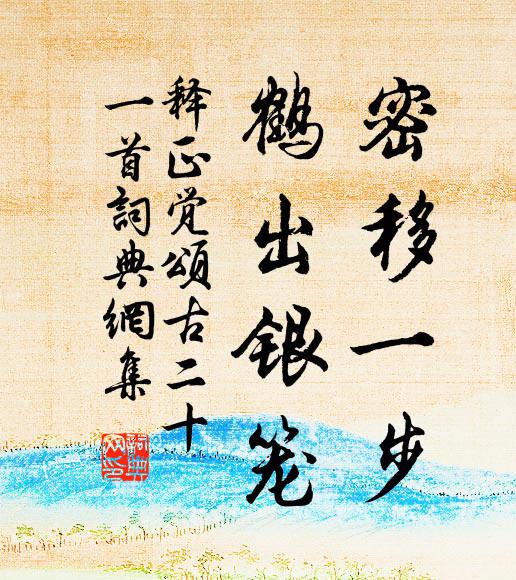 密移一步
鹤出银笼
释正觉颂古二十
一首詞典網集